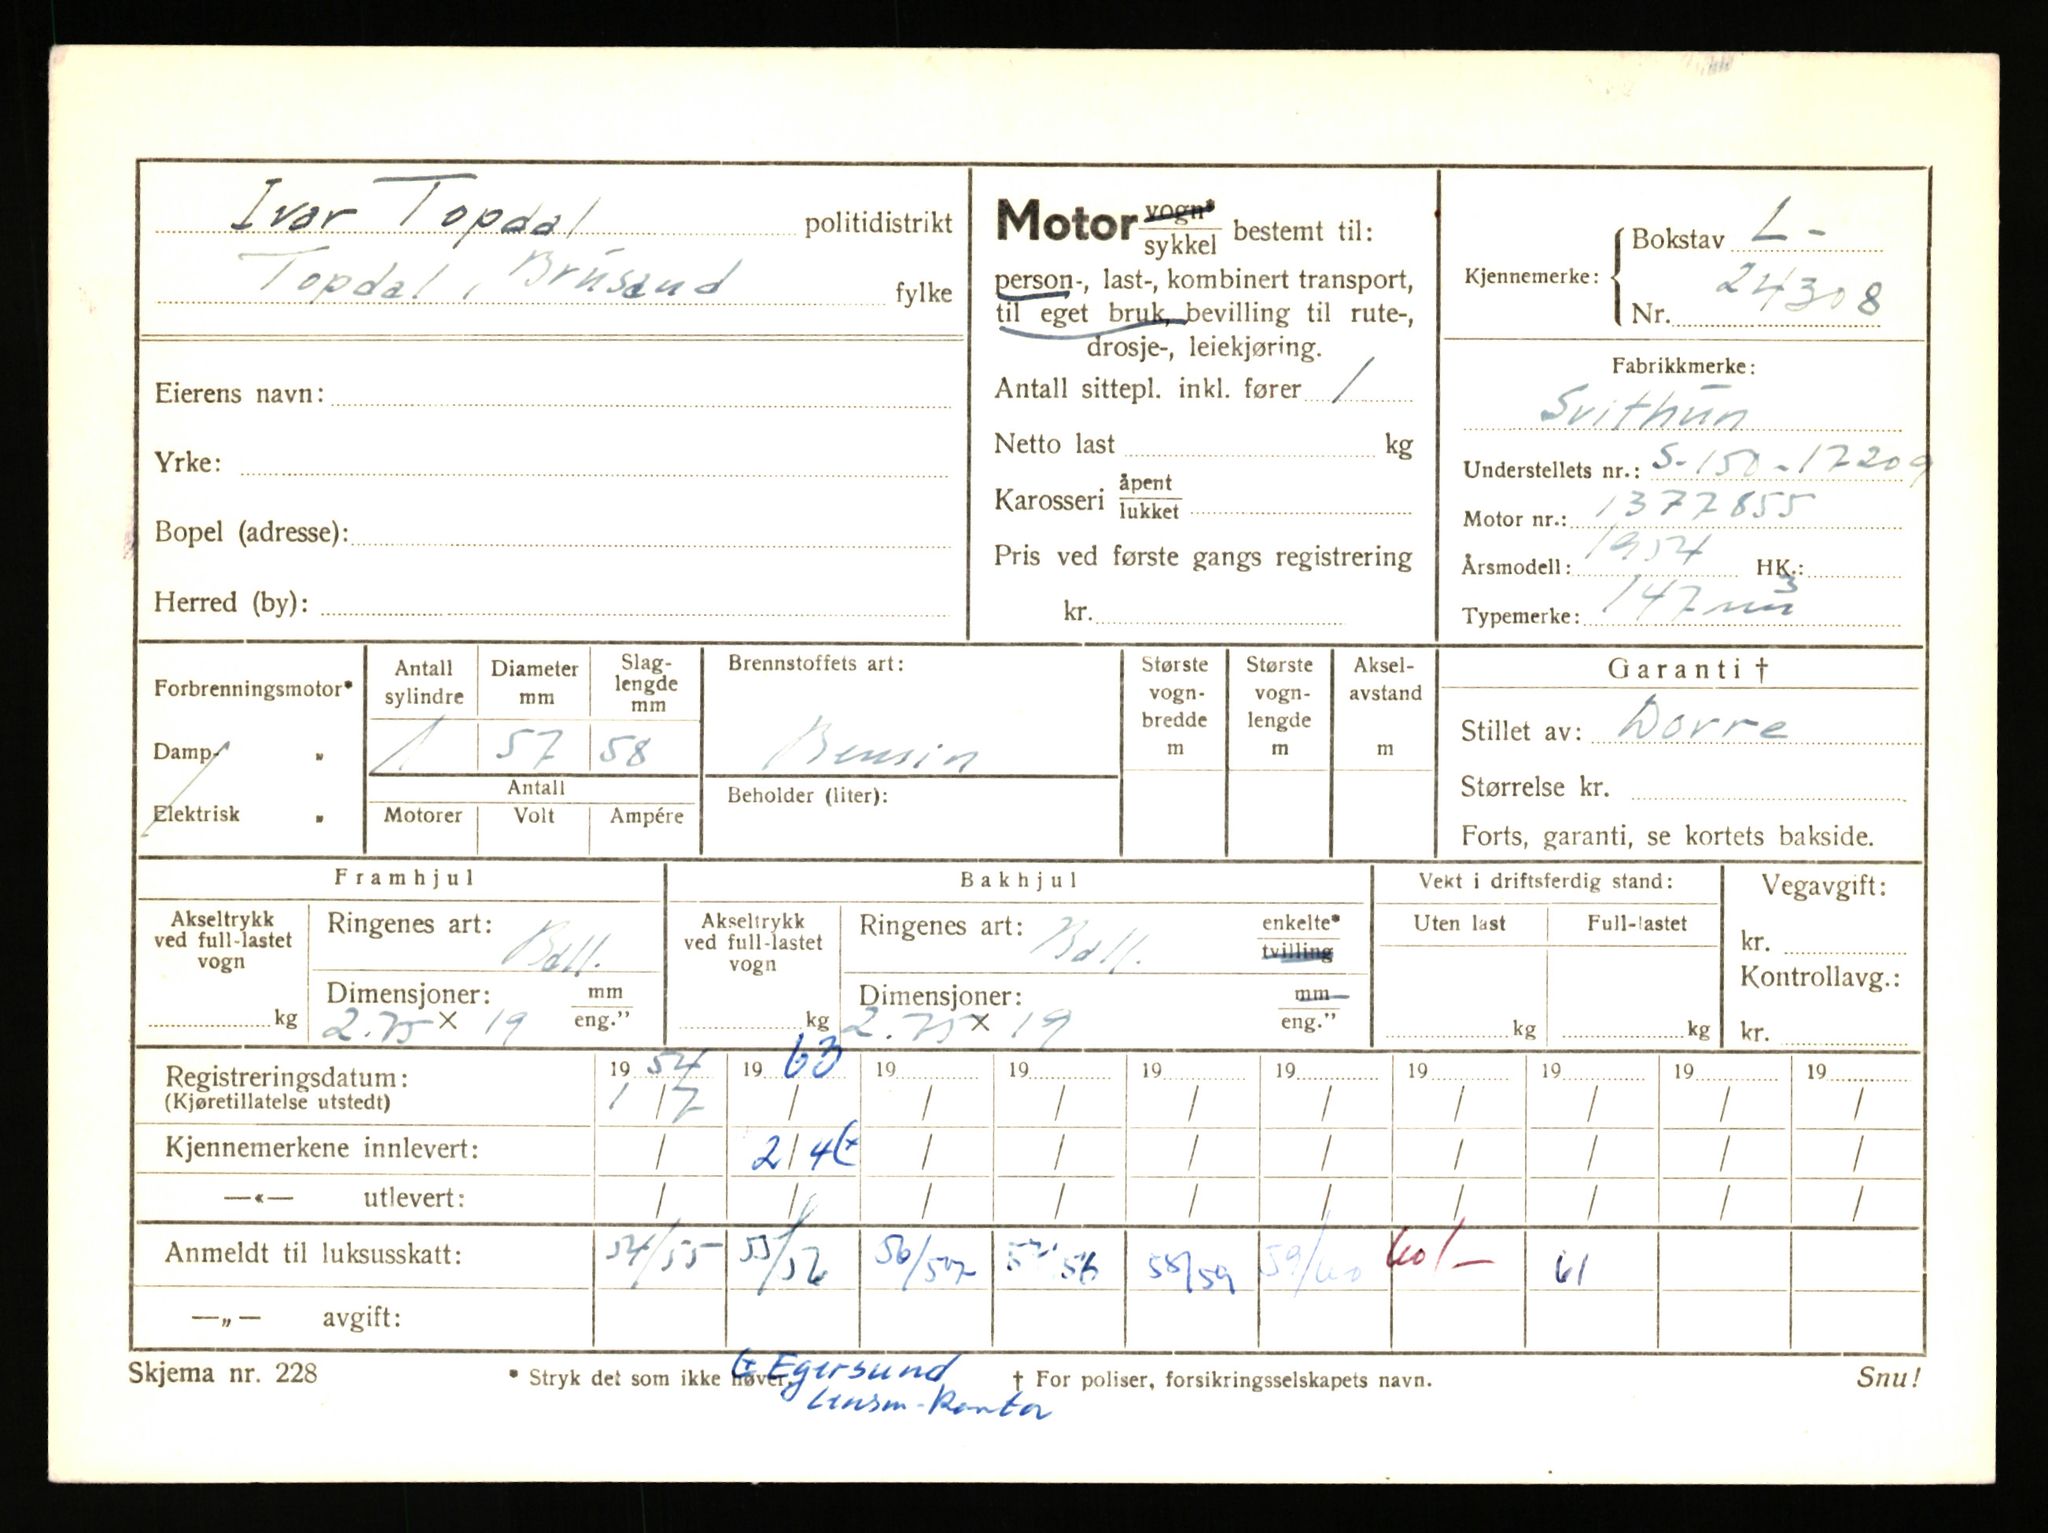 Ivar Topdal politidistrikt
Topdal, Brusand fylke
Eierens navn:
Yrke:
Bopel (adresse):
Herred (by):
Motor vogn* / sykkel bestemt til:
person-, last-, kombinert transport,
til eget bruk, bevilling til rute-,
drosje-, leiekjøring.
Antall sittepl. inkl. fører 1
Netto last kg
Karosseri åpent / lukket
Pris ved første gangs registrering
kr.
Kjennemerke: Bokstav L -
Nr. 24308
Fabrikkmerke:
Svithun
Understellets nr.: S-150-17209
Motor nr.: 1377855
Årsmodell: 1954 HK.:
Typemerke: 147 cm³
Forbrenningsmotor*
Damp- "
Elektrisk "
Antall sylindre 1
Diameter mm 57
Slag-lengde mm 58
Antall
Motorer Volt Ampére
Brennstoffets art:
Bensin
Beholder (liter):
Største vogn-bredde m
Største vogn-lengde m
Aksel-avstand m
Garanti †
Stillet av: Dovre
Størrelse kr.
Forts, garanti, se kortets bakside.
Framhjul
Akseltrykk ved full-lastet vogn kg
Ringenes art: Ball.
Dimensjoner: mm / eng."
2.75 x 19
Bakhjul
Akseltrykk ved full-lastet vogn kg
Ringenes art: Ball. enkelte* / tvilling
Dimensjoner: mm / eng."
2.75 x 19
Vekt i driftsferdig stand:
Uten last Full-lastet
kg kg
Vegavgift:
kr.
Kontrollavg.:
kr.
Registreringsdatum: 19 54 19 63 19 19 19 19 19 19 19 19
(Kjøretillatelse utstedt) 1/7 / / / / / / / / /
Kjennemerkene innlevert: / 2/4 (+ / / / / / / / /
—«— utlevert: / / / / / / / / / /
Anmeldt til luksusskatt: 54/55 55/56 56/57 57/58 58/59 59/60 60/- 61
—„— avgift:
Skjema nr. 228
* Stryk det som ikke høver.
† For poliser, forsikringsselskapets navn.
Snu!
(+ Egersund
Lensm-kontor